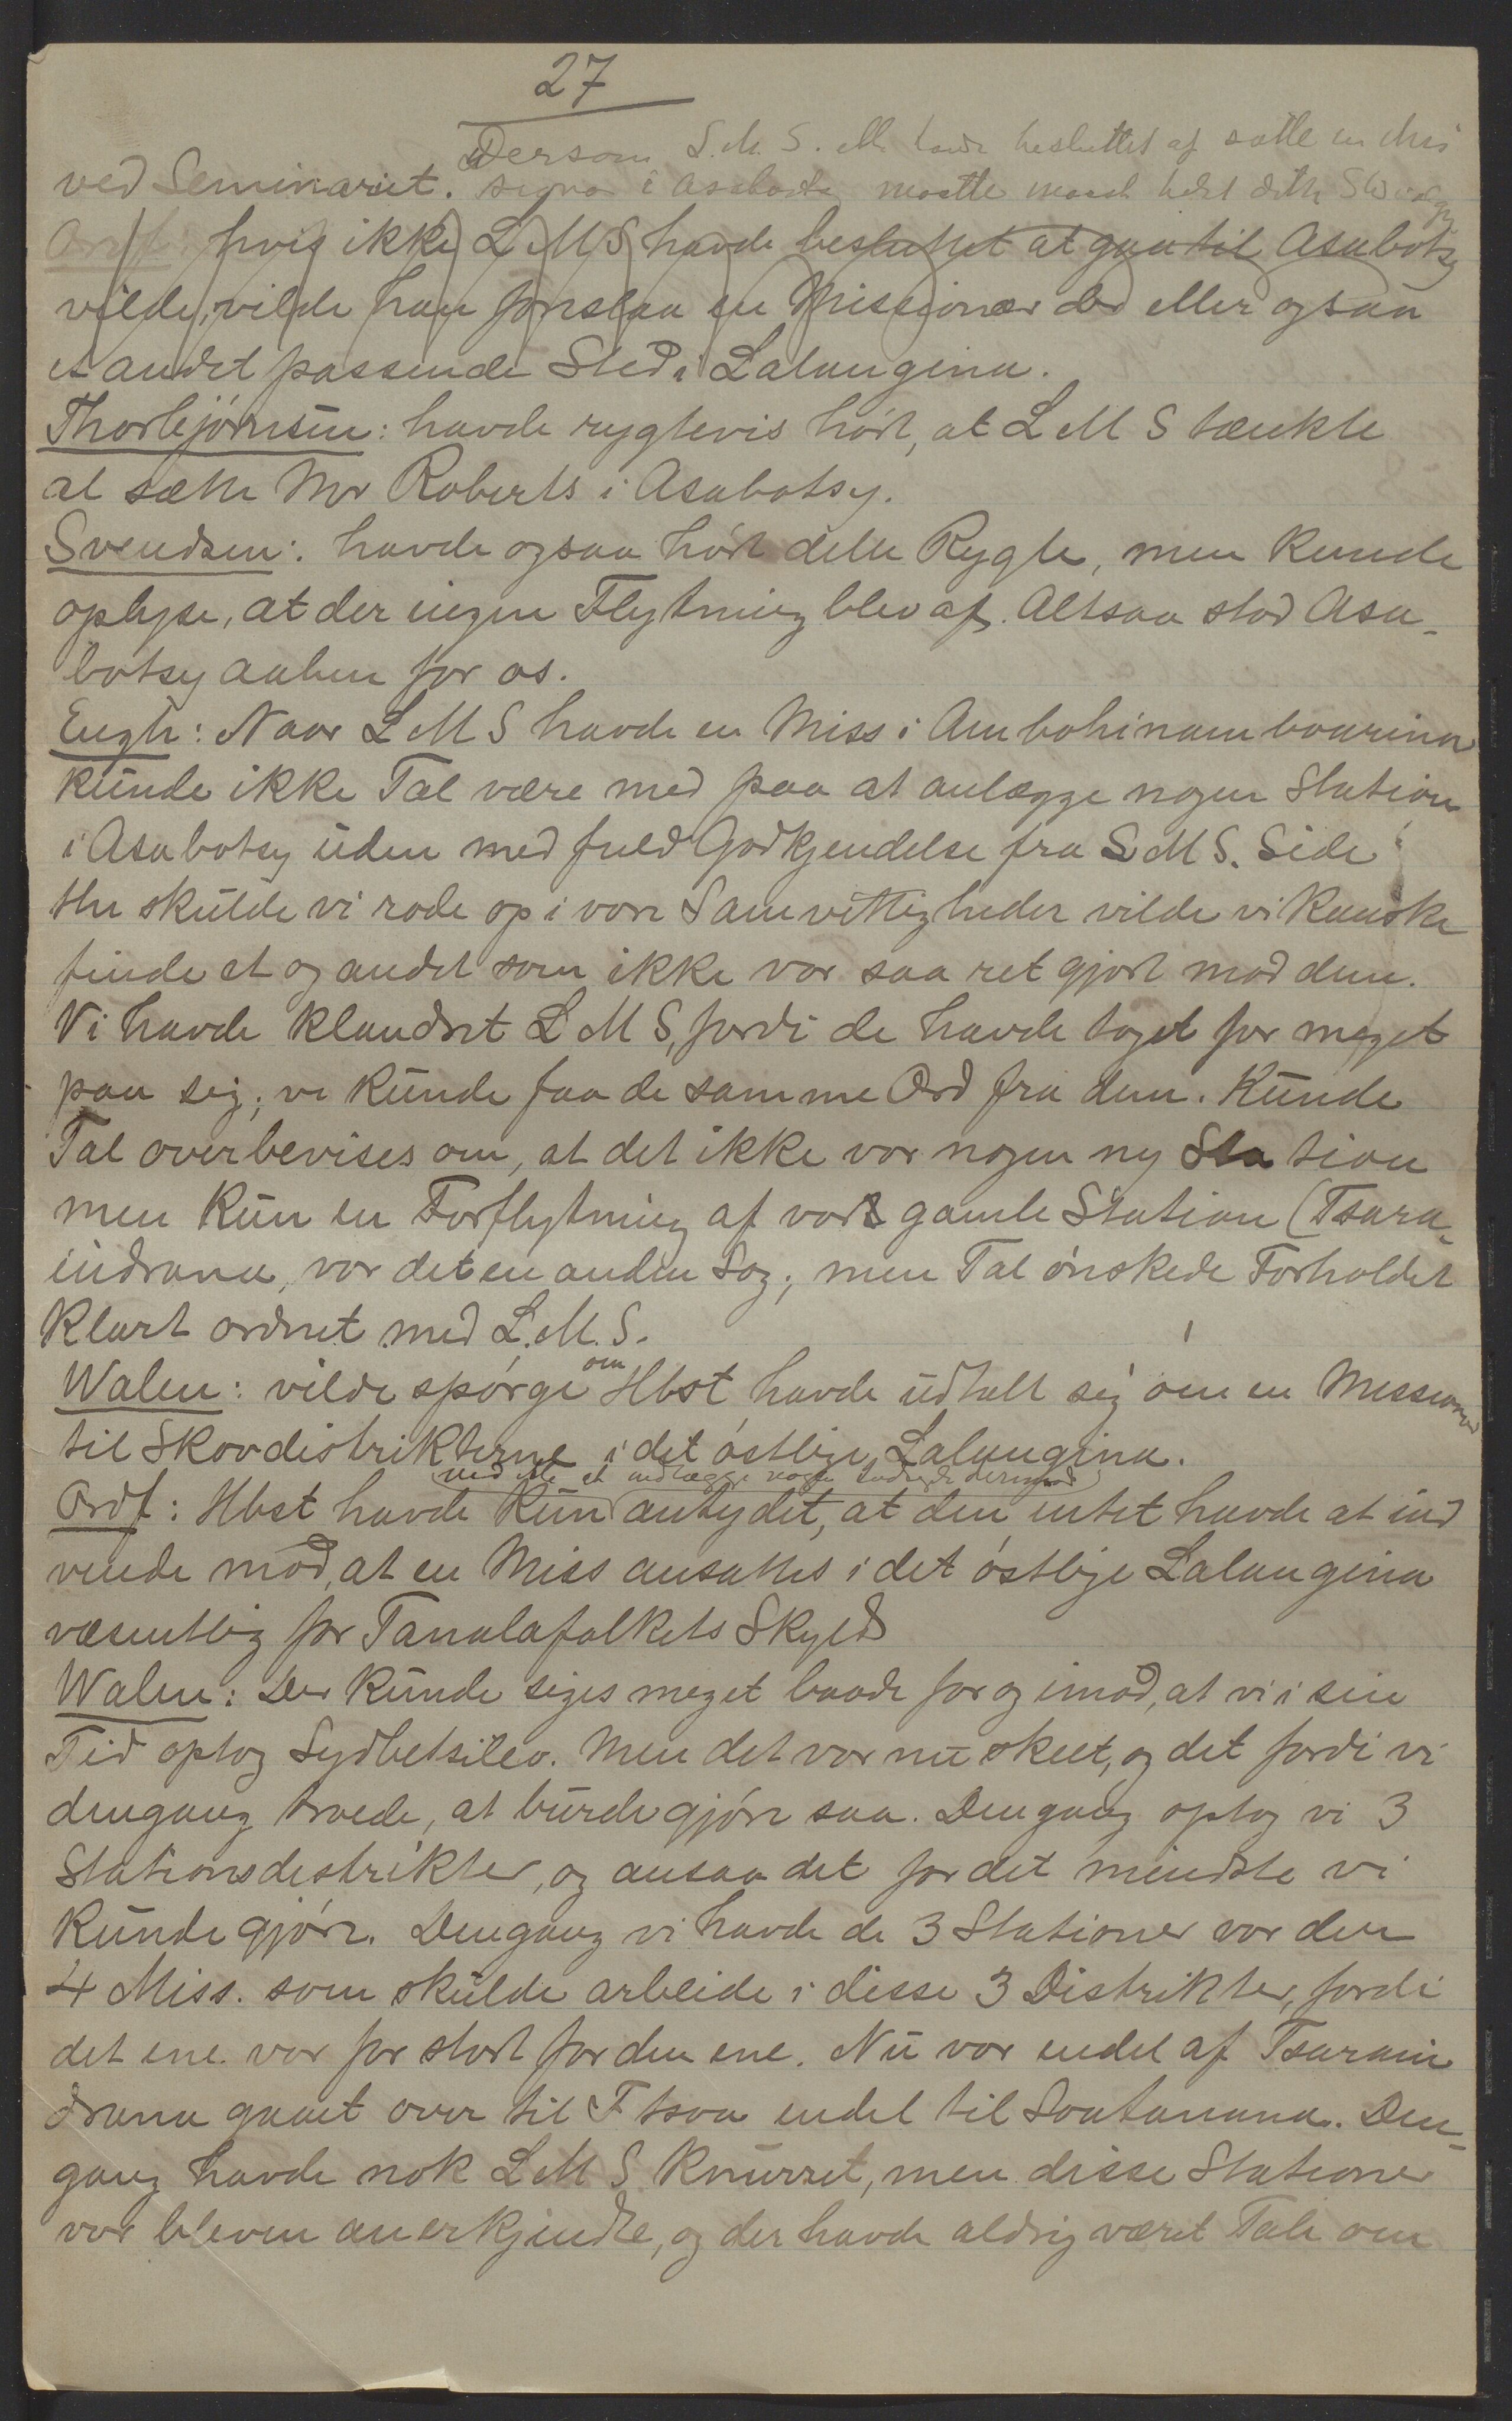 27
Dersom L.M.S. havde besluttet at sætte en Mis
ved Seminariet. i Asabotsy maatte
Ordf: hvis ikke L M S havde besluttet at gaa til Asabotsy
vilde, vilde han foreslaa en Missionær der eller ogsaa
et andet passende Sted i Lalangina.
Thorbjørnsen: havde rygtevis hørt, at L M S tænkte
at sætte Mr Roberts i Asabotsy.
Svendsen: havde ogsaa hørt dette Rygte, men kunde
oplyse, at der ingen Flytning blev af. Altsaa stod Asa-
botsy aaben for os.
Engh: Naar L M S havde en Miss i Ambohinamboarina
kunde ikke Tal være med paa at anlægge nogen Station
i Asabotsy uden med fuld Godkjendelse fra L M S. Side
Hr skulde vi rode op i vore Samvittigheder vilde vi kanske
finde et og andet som ikke var saa ret gjort mod dem.
Vi havde klandret L M S, fordi de havde taget for meget
paa sig; vi kunde faa de samme Ord fra dem. Kunde
Tal overbevises om, at det ikke var nogen ny Station
men kun en Forflytning af vor gamle Station (Tsara-
indrana, var det en anden Sag; men Tal ønskede Forholdet
klart ordnet med L.M.S.
Walen: vilde spørge om Hbst havde udtalt sig om en Missionær
til Skovdistrikterne i det østlige Lalangina.
ved ikke at nedlægge nogen dermed
Ordf: Hbst havde kun antydet, at den intet havde at ind
vende mod, at en Miss ansattes i det østlige Lalangina
væsentlig for Tanalafolkets Skyld
Walen: Der kunde siges meget baade for og imod, at vi i sin
Tid optog Sydbetsileo. Men det var nu skeet, og det fordi vi
dengang troede, at burde gjøre saa. Dengang optog vi 3
Stationsdistrikter, og ansaa det for det mindste vi
kunde gjøre. Dengang vi havde de 3 Stationer var der
4 Miss. som skulde arbeide i disse 3 Distrikter, fordi
det ene var for stort for den ene. Nu var endel af Tsarain
drana gaaet over til F tsoa endel til Soatanana. Den-
gang havde nok L M S knurret, men disse Stationer
var bleven anerkjendte, og der havde aldrig været Tale om